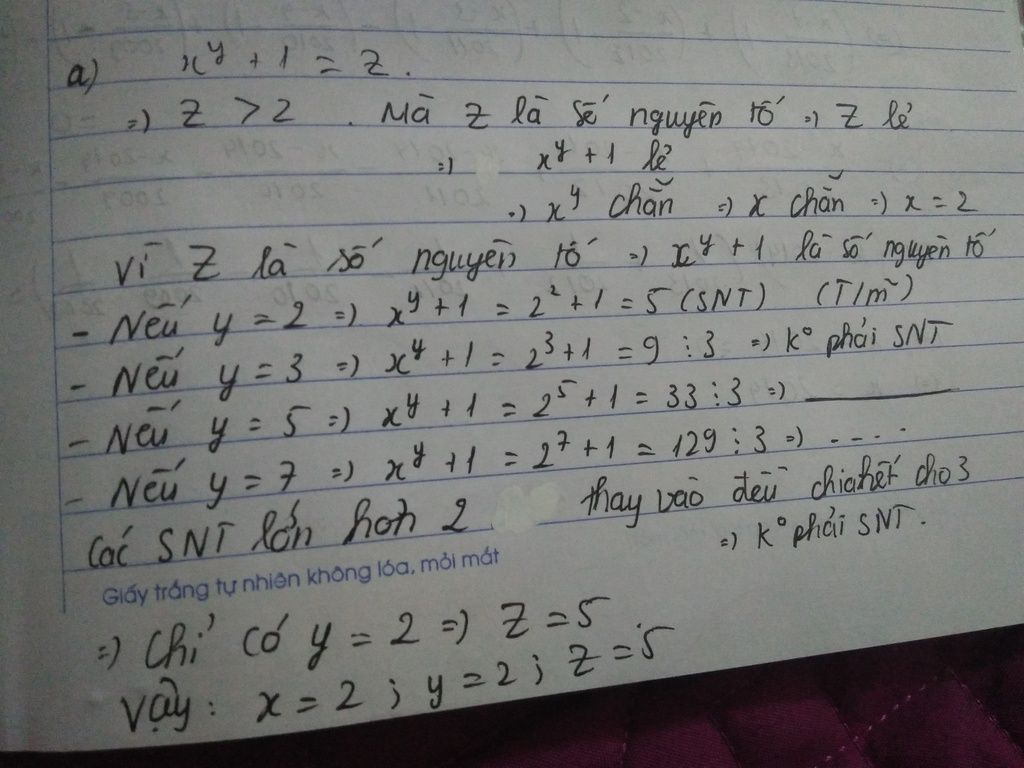 a) x^y + 1 = z.
=) z > 2 . Mà z là số nguyên tố =) z lẻ
=) x^y + 1 lẻ
=) x^y chẵn =) x chẵn =) x = 2
Vì z là số nguyên tố =) x^y + 1 là số nguyên tố
- Nếu y = 2 =) x^y + 1 = 2^2 + 1 = 5 (SNT) (T/m~)
- Nếu y = 3 =) x^y + 1 = 2^3 + 1 = 9 ⋮ 3 =) k° phải SNT
- Nếu y = 5 =) x^y + 1 = 2^5 + 1 = 33 ⋮ 3 =) ______
- Nếu y = 7 =) x^y + 1 = 2^7 + 1 = 129 ⋮ 3 =) ....
Các SNT lớn hơn 2 thay vào đều chia hết cho 3
=) k° phải SNT.
Giấy trắng tự nhiên không lóa, mỏi mắt
=) Chỉ có y = 2 =) z = 5
Vậy: x = 2 ; y = 2 ; z = 5